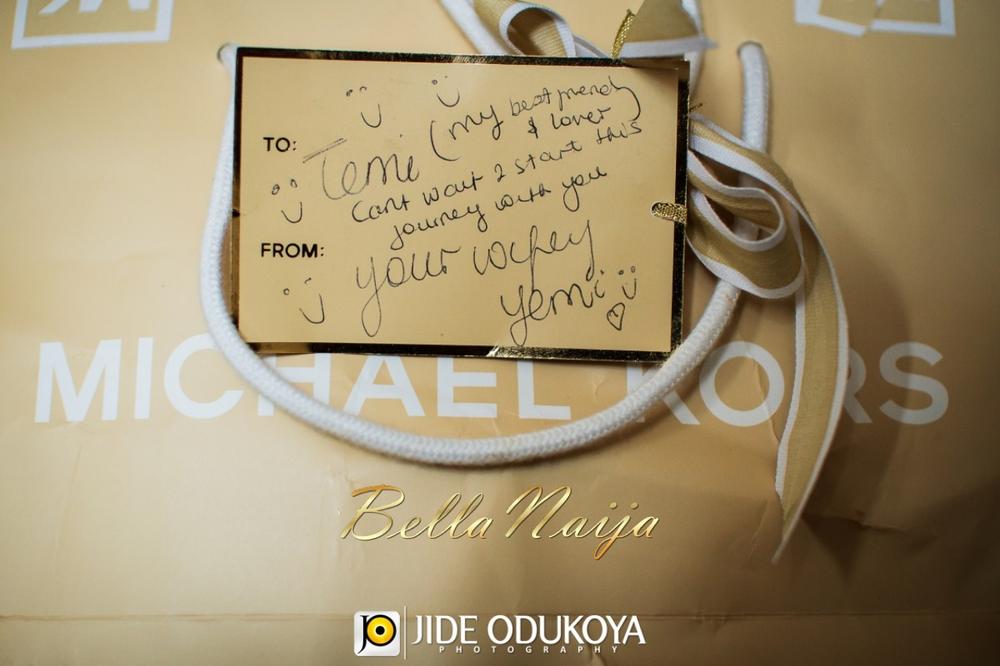 TO: Temi (my best friend
& lover)
Cant wait 2 start this
journey with you
FROM: your wifey
Yemi
MICHAEL KORS
BellaNaija
JO JIDE ODUKOYA
PHOTOGRAPHY